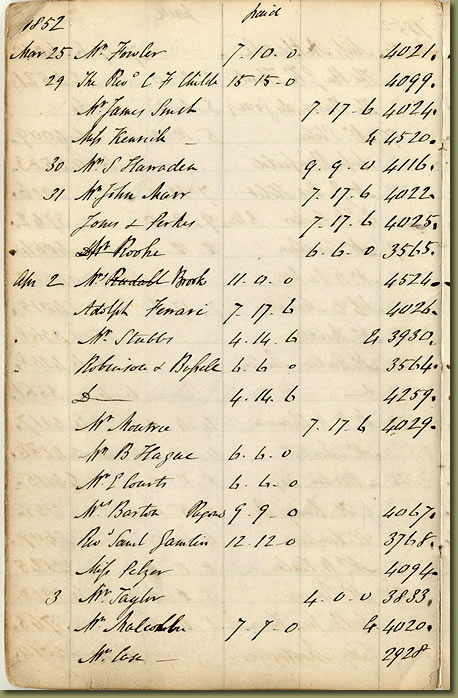 1852 paid
Mar 25 Mr Fowler 7-10-0 4021.
29 The Revd C F Childe 15-15-0 4099.
Mr James Smith 7.17.6 4024.
Miss Kenrick 4520.
30 Mr S Harraden 9.9.0 4116.
31 Mr John Marr 7.17.6 4022.
Jones & Perkes 7.17.6 4025.
Mr Rooke 6.6.0 3565.
Apr 2 Mr Brook 11.0.0 4524.
Adolph Ferrari 7.17.6 4026.
Mr Stubbs 4.14.6 3930.
Robinson & Bussell 6.6.0 3564.
D 4.14.6 4259.
Mr 7.17.6 4029.
Mr B Hague 6.6.0
Mr E Coarts 6.6.0
Mrs Barton 9.9.0 4067.
Revd Saml 12.12.0 3768.
Miss Pelzer 4094.
3 Mr Taylor 4.0.0 3833.
Mr Malcolm 7.7.0 4020.
Mr Case 2928